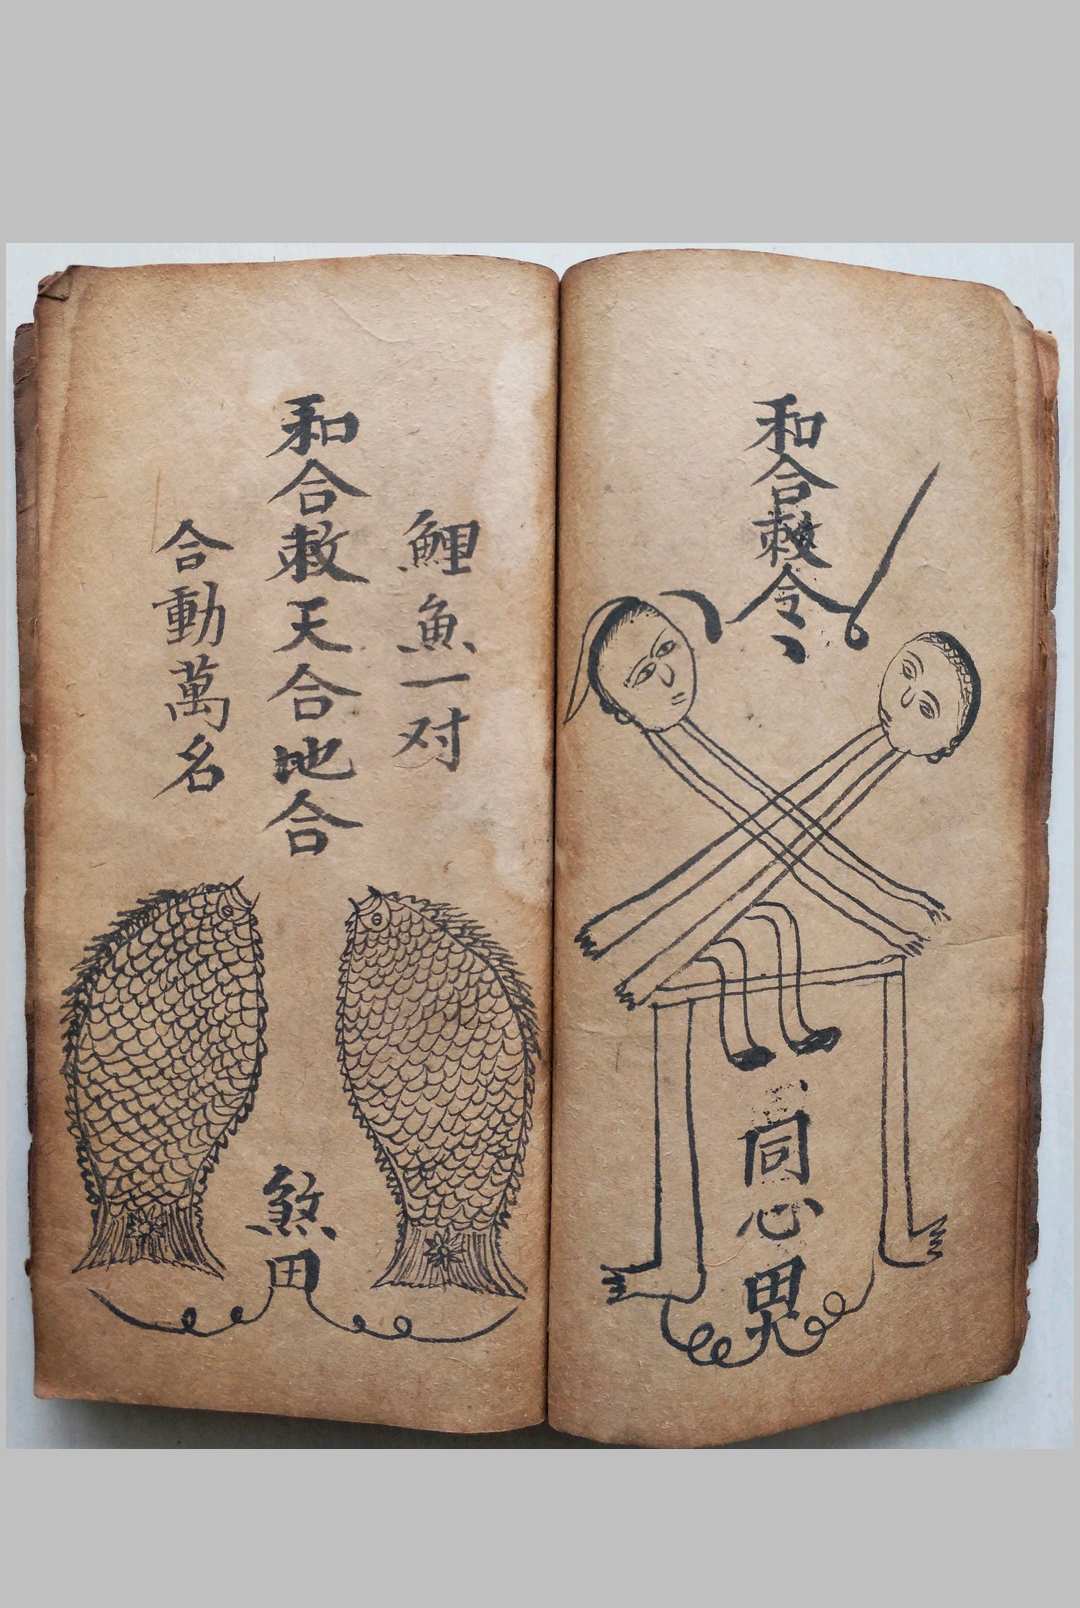 和合敕令
同心
鯉魚一对
和合敕天合地合
合動萬名
煞田